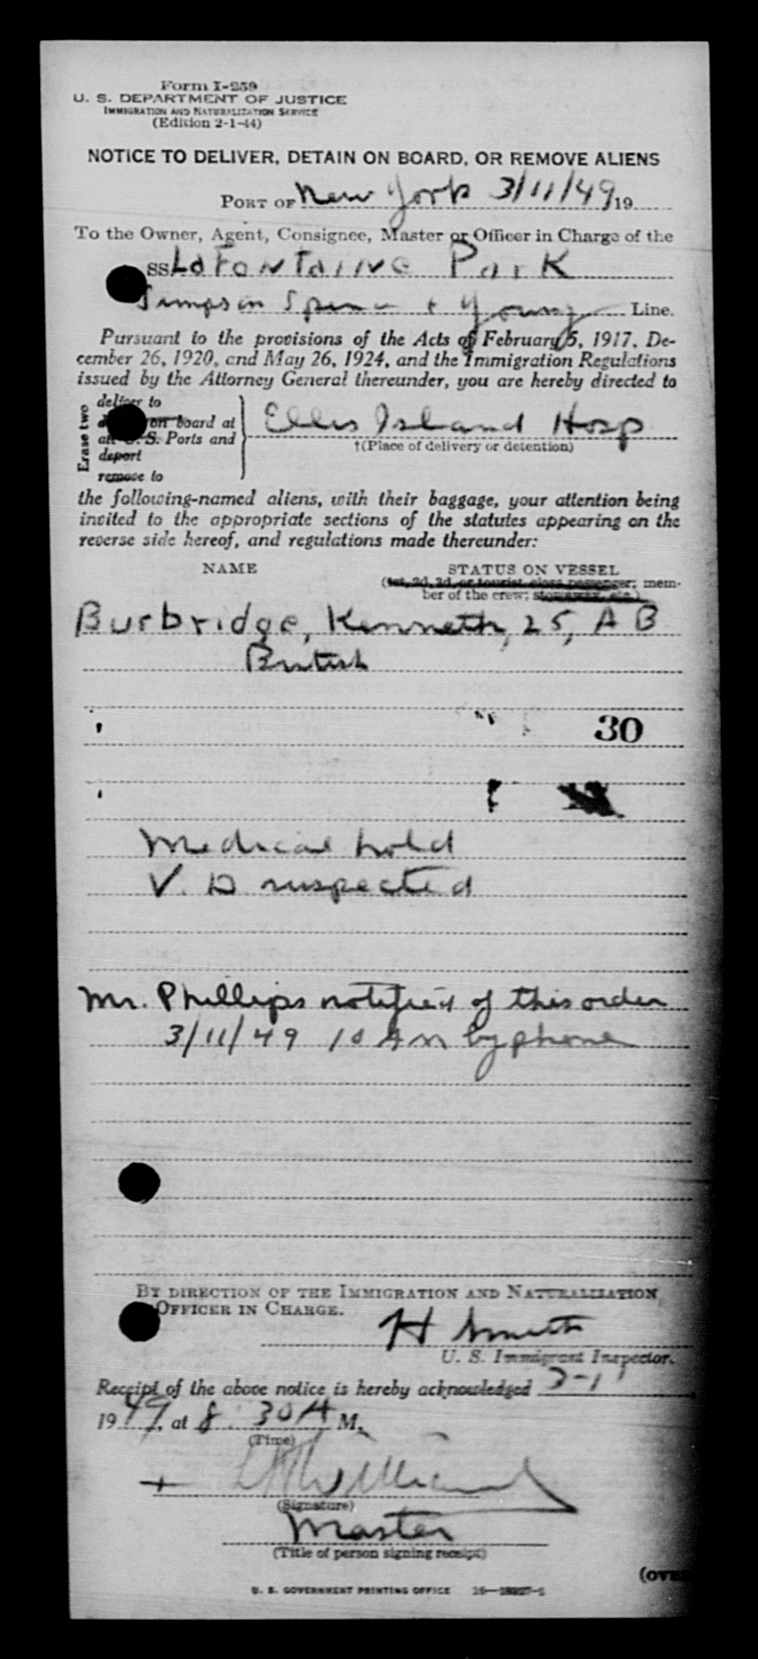 Form I-259
U. S. DEPARTMENT OF JUSTICE
IMMIGRATION AND NATURALIZATION SERVICE
(Edition 2-1-44)
NOTICE TO DELIVER, DETAIN ON BOARD, OR REMOVE ALIENS
PORT OF New York 3/11/49 19
To the Owner, Agent, Consignee, Master or Officer in Charge of the
SS Lafontaine Park
Simpson Spence & Young Line.
Pursuant to the provisions of the Acts of February 5, 1917, De-
cember 26, 1920, and May 26, 1924, and the Immigration Regulations
issued by the Attorney General thereunder, you are hereby directed to
Erase two
deliver to
on board at
all U. S. Ports and
deport
remove to
Ellis Island Hosp
†(Place of delivery or detention)
the following-named aliens, with their baggage, your attention being
invited to the appropriate sections of the statutes appearing on the
reverse side hereof, and regulations made thereunder:
NAME STATUS ON VESSEL
(1st, 2d, 3d, or tourist class passenger; mem-
ber of the crew; stowaway, etc.)
Burbridge, Kenneth, 25, A B
British
30
Medical hold
V. D suspected
Mr. Phillips notified of this order
3/11/49 10 AM by phone
BY DIRECTION OF THE IMMIGRATION AND NATURALIZATION
OFFICER IN CHARGE.
H Smith
U. S. Immigrant Inspector.
Receipt of the above notice is hereby acknowledged 3-11
1949, at 8:30 A M.
(Time)
Williams
(Signature)
Master
(Title of person signing receipt)
(ove
U. S. GOVERNMENT PRINTING OFFICE